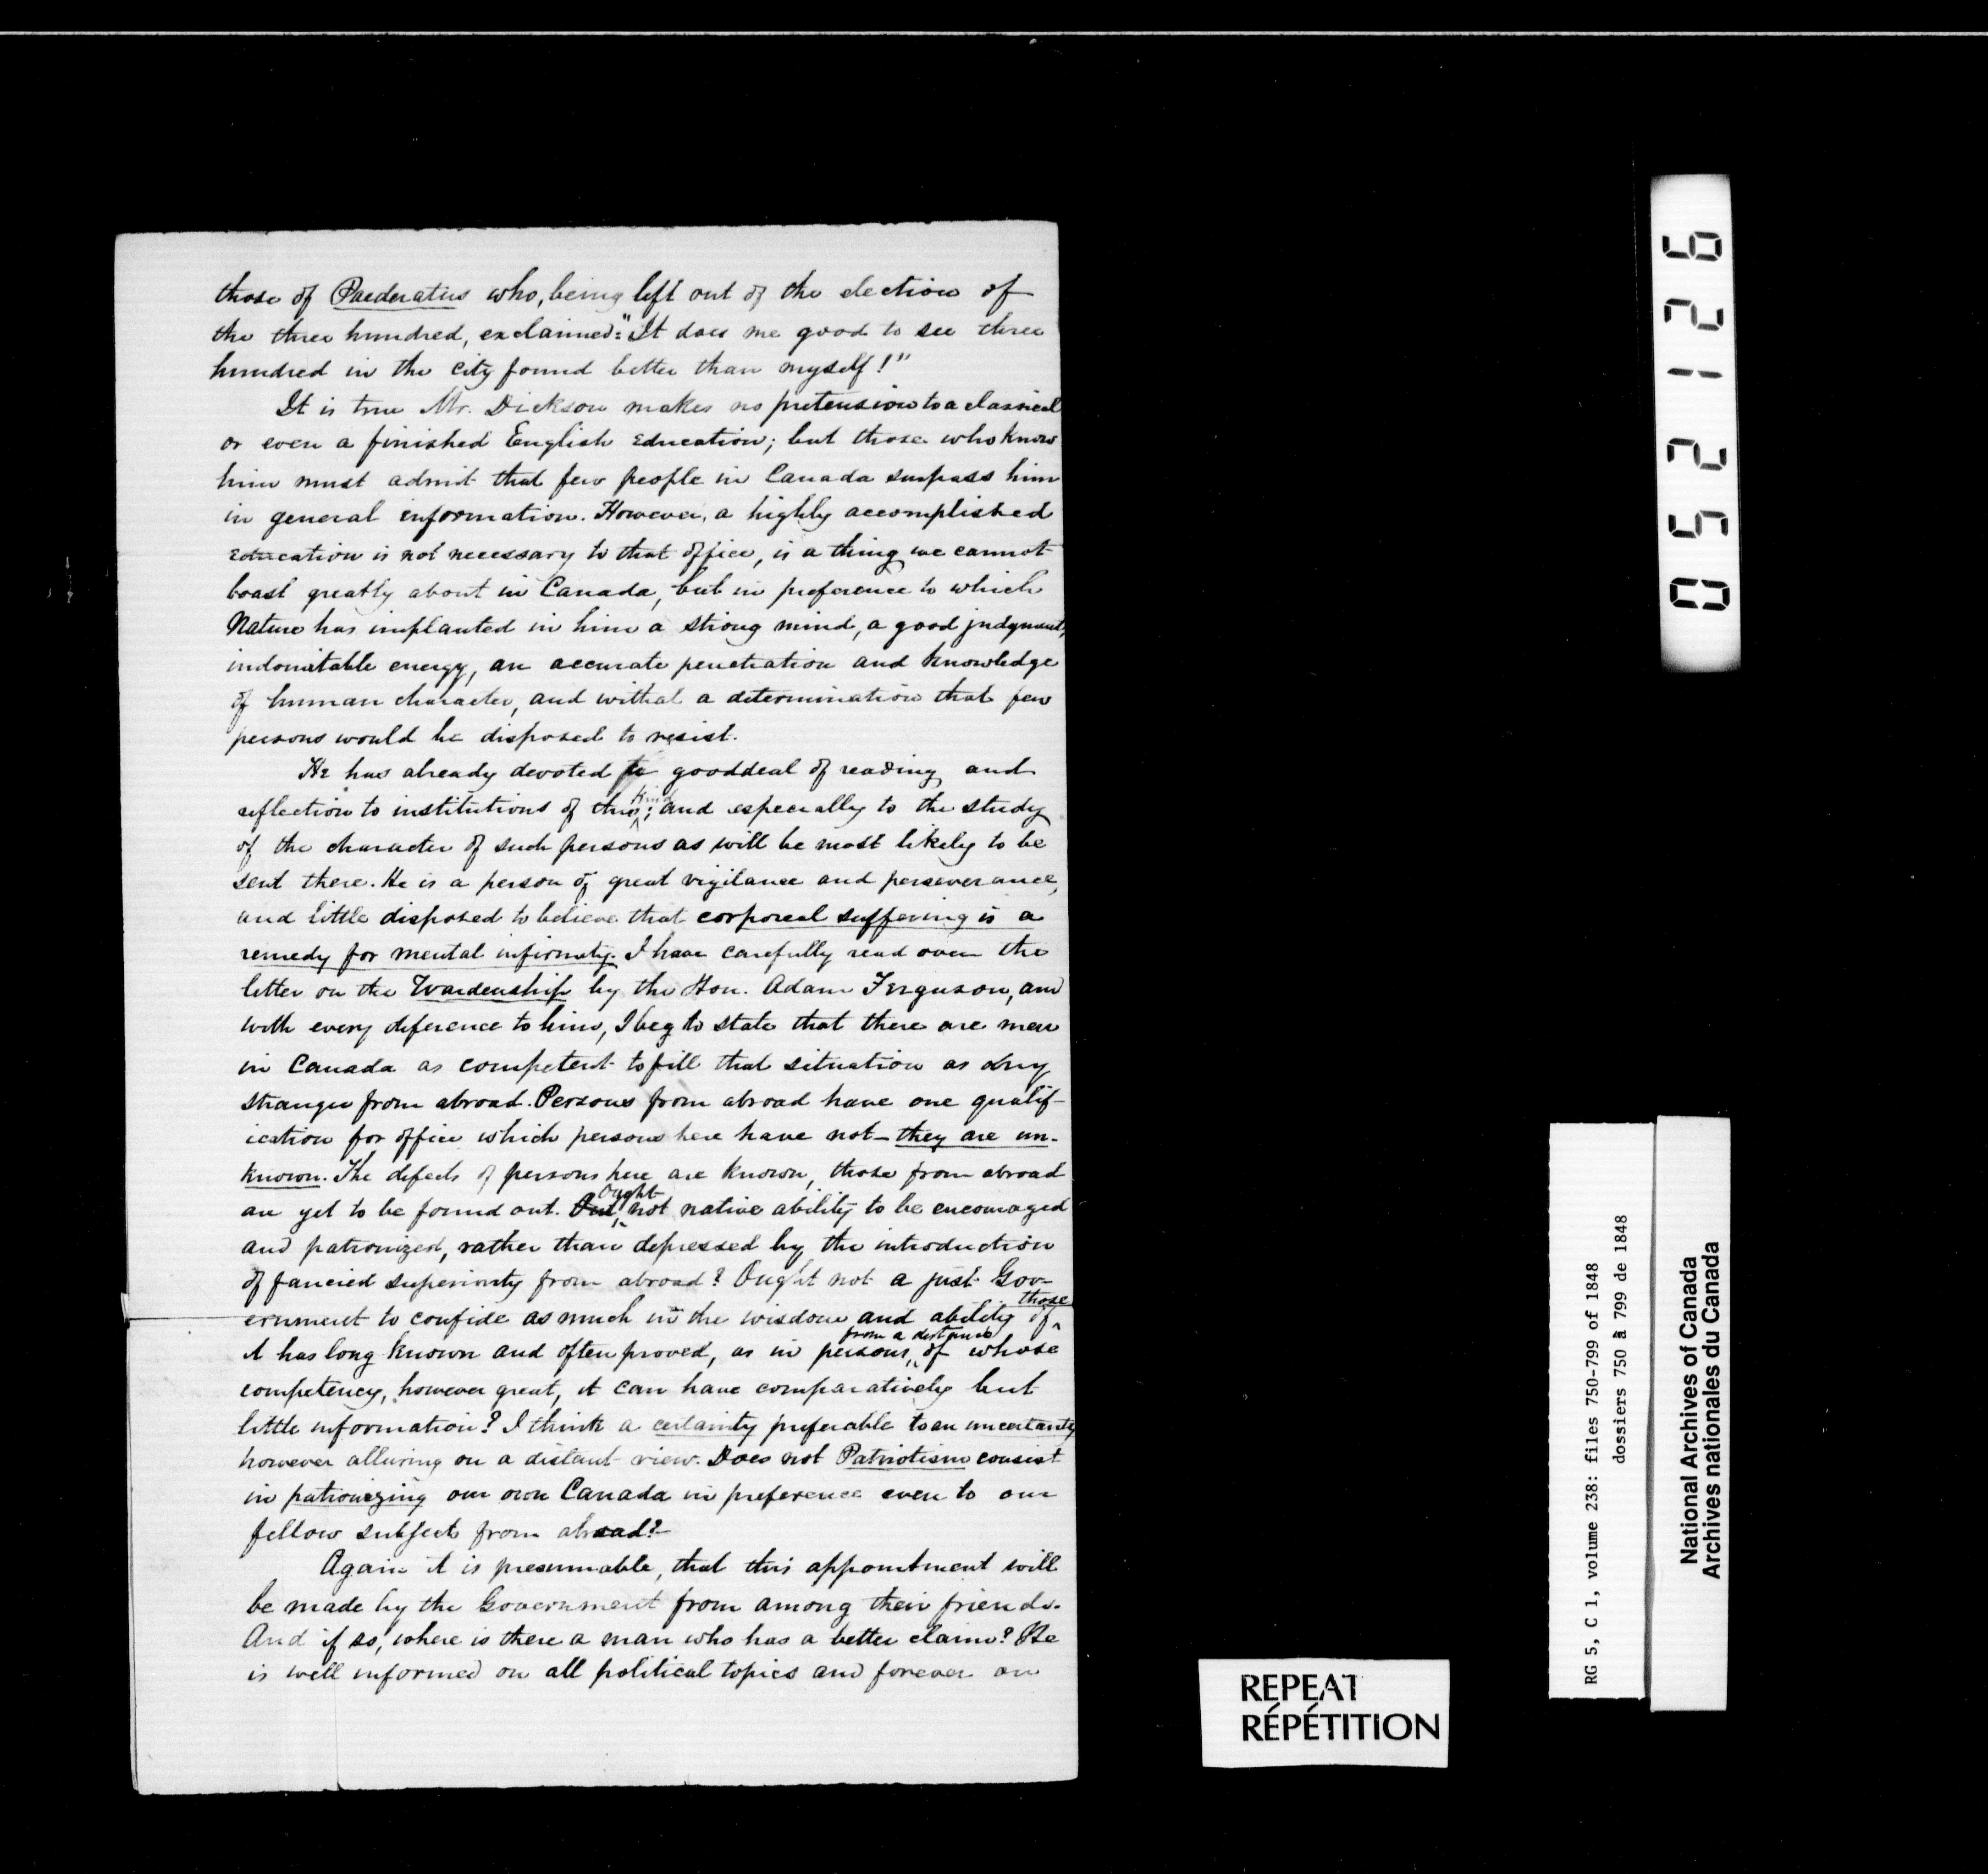 those of Paederatus who, being left out of the election of
the three hundred, exclaimed: "It does me good to see three
hundred in the city found better than myself!"
It is true Mr. Dickson makes no pretension to a classical
or even a finished English Education; but those who know
him must admit that few people in Canada surpass him
in general information. However, a highly accomplished
education is not necessary to that office, is a thing we cannot
boast greatly about in Canada, but in preference to which
Nature has implanted in him a strong mind, a good judgment,
indomitable energy, an accurate penetration and knowledge
of human character, and withal a determination that few
persons would be disposed to resist.
He has already devoted a gooddeal of reading and
reflection to institutions of this kind; and especially to the study
of the character of such persons as will be most likely to be
sent there. He is a person of great vigilance and perseverance,
and little disposed to believe that corporeal suffering is a
remedy for mental infirmity. I have carefully read over the
letter on the Wardenship by the Hon. Adam Ferguson, and
with every diference to him, I beg to state that there are men
in Canada as competent to fill that situation as any
stranger from abroad. Persons from abroad have one qualif-
ication for office which persons here have not - they are un-
known. The defects of persons here are known, those from abroad
are yet to be found out. Ought not native ability to be encouraged
and patronized, rather than depressed by the introduction
of fancied superiority from abroad? Ought not a just Gov-
ernment to confide as much in the wisdom and ability of those
it has long known and often proved, as in persons from a distance, of whose
competency, however great, it can have comparatively but
little information? I think a certainty preferable to an uncertainty
however alluring on a distant view. Does not Patriotism consist
in patronizing our own Canada in preference even to our
fellow subjects from abroad?
Again it is presumable, that this appointment will
be made by the Government from among their friends.
And if so, where is there a man who has a better claim? He
is well informed on all political topics and forever an
052126
RG 5, C 1, volume 238: files 750-799 of 1848
dossiers 750 à 799 de 1848
National Archives of Canada
Archives nationales du Canada
REPEAT
RÉPÉTITION